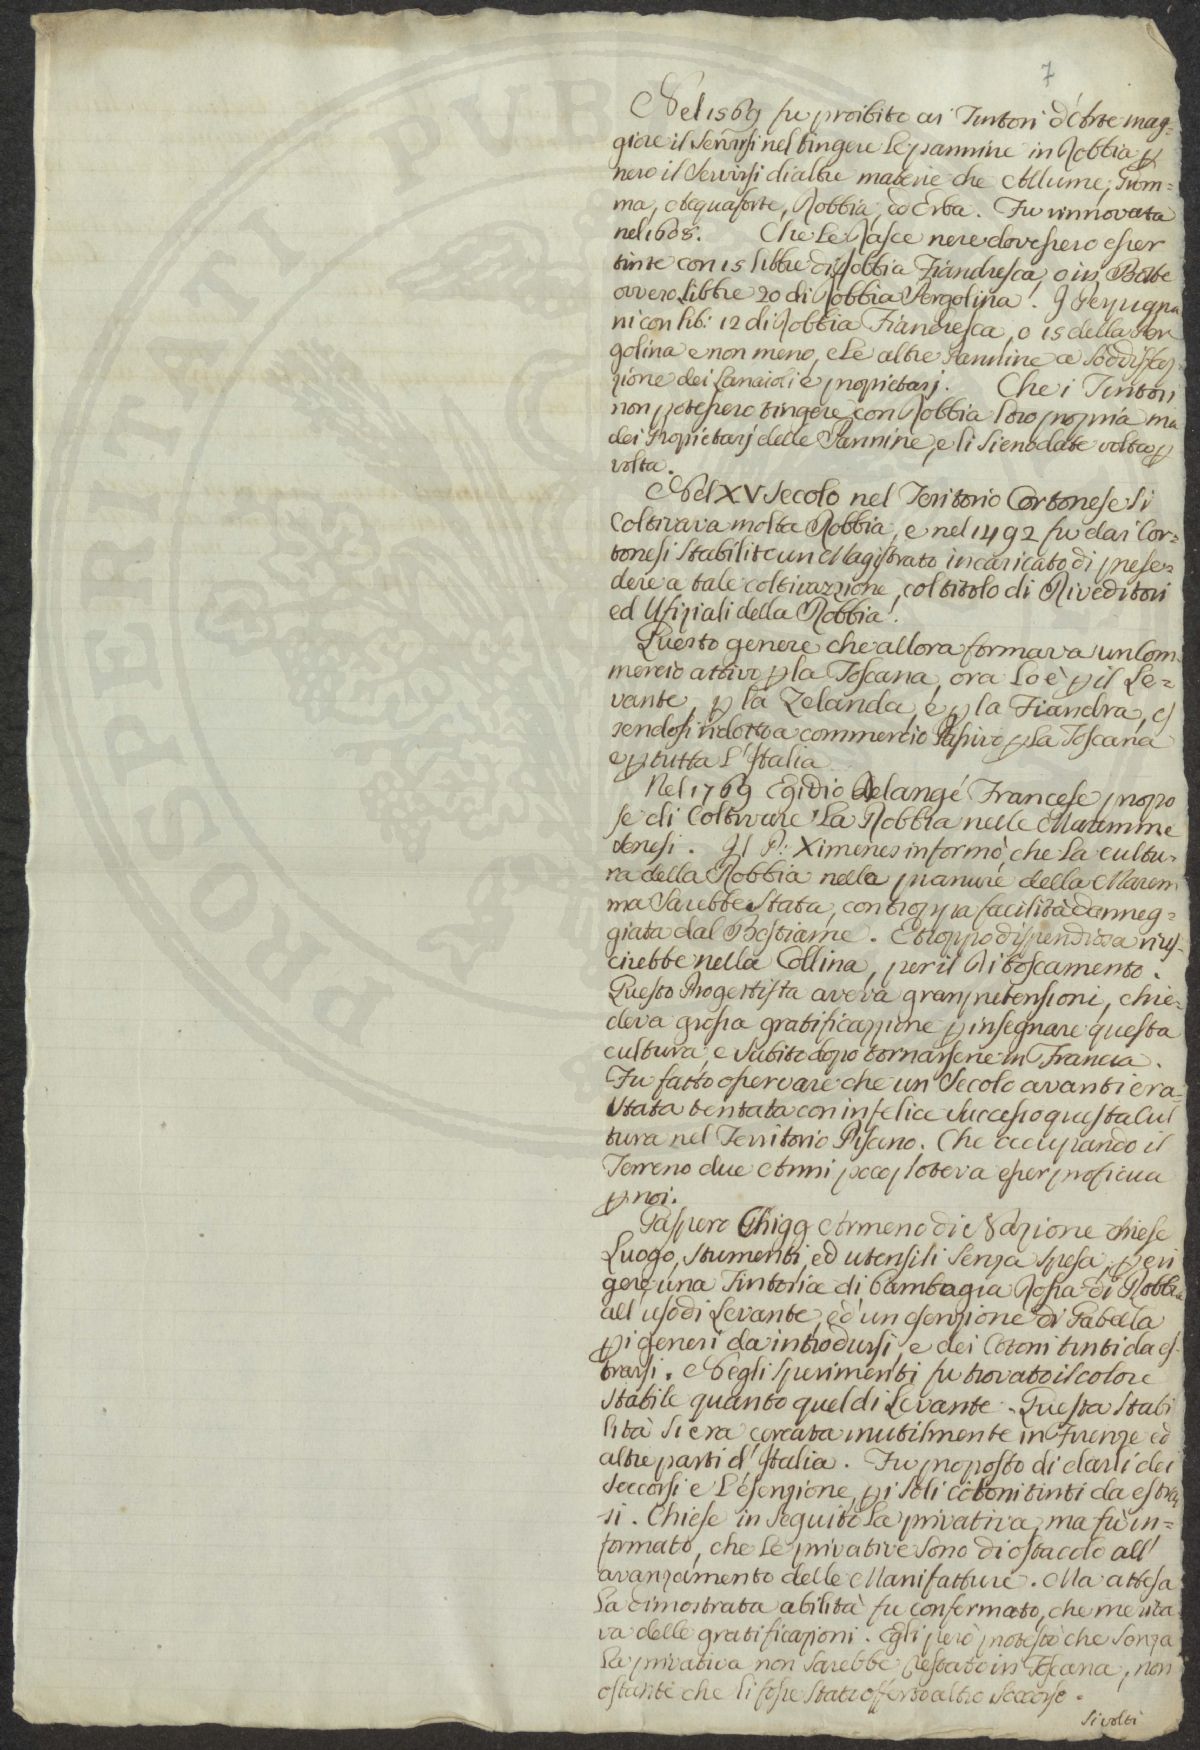 7
Nel 1569 fu proibito ai Tintori d'Arte mag=
giore il servirsi nel tingere le pannine in Robbia p
nero il servirsi di altre materie che Allume, Gom=
ma, Acquaforte, Robbia, ed Erba. Fu rinnovata
nel 1608. Che le Rasce nere dovessero esser
tinte con 15 libbre di Robbia Fiandresca, o in
ovvero libbre 20 di Robbia Vergolina. I Perpigna
ni con lib: 12 di Robbia Fiandresca, o 15 della Ver
golina e non meno, e le altre Pannine a soddisfa
zione dei Lanaioli e proprietarj. Che i Tintori
non potessero tingere con Robbia loro propria ma
dei Propietarj delle Pannine, e li sieno date volta p
volta.
Nel XV Secolo nel Teritorio Cortonese si
coltivava molta Robbia, e nel 1492 fu dai Cor=
tonesi stabilito un Magistrato incaricato di prese
dere a tale coltivazzione, col titolo di Riveditori
ed Ufiziali della Robbia.
Questo genere che allora formava un Com
mercio attivo p la Toscana, ora lo è p il Le=
vante, p la Zelanda, e p la Fiandra, es
sendosi ridotto a commercio Passivo p la Toscana
e p tutta l'Italia
Nel 1769 Egidio Delangé Francese propo
se di coltivare la Robbia nelle Maremme
Senesi. Il P: Ximenes informò, che la cultu=
ra della Robbia nelle pianure della Marem
ma sarebbe stata, con troppa facilità danneg=
giata dal Bestiame. E troppo dispendiosa rius=
cirebbe nella Collina, per il Diboscamento.
Questo Progettista aveva gran pretensioni, chie=
deva grossa gratificazione p insegnare questa
cultura, e subito dopo tornarsene in Francia.
Fu fatto osservare che un Secolo avanti era=
stata tentata con infelice successo questa Cul
tura nel Territorio Pisano. Che occupando il
Terreno due Anni poco poteva esser proficua
p noi.
Gaspero Ghigg Armeno di Nazione chiese
Luogo, Stumenti, ed utensili senza spesa, p eri
gere una Tintoria di Bambagia Rossa di Robbia
all'uso di Levante, ed un esenzione di Gabella
p i generi da introdursi, e dei Cotoni tinti da es=
trarsi. Negli sperimenti fu trovato il colore
stabile quanto quel di Levante. Questa stabi
lità si era cercata inutilmente in Firenze ed
altre parti d'Italia. Fu proposto di darli dei
soccorsi e l'esenzione, p i soli cotoni tinti da estrar
si. Chiese in seguito la privativa, ma fù in=
formato, che le privative sono di ostacolo all'
avanzamento delle Manifatture. Ma attesa
la dimostrata abilità fu confermato, che merita
va delle gratificazioni. Egli però protestò che senza
la privativa non sarebbe restato in Toscana, non
ostante che li fosse stato offerto altro soccorso.
si volti